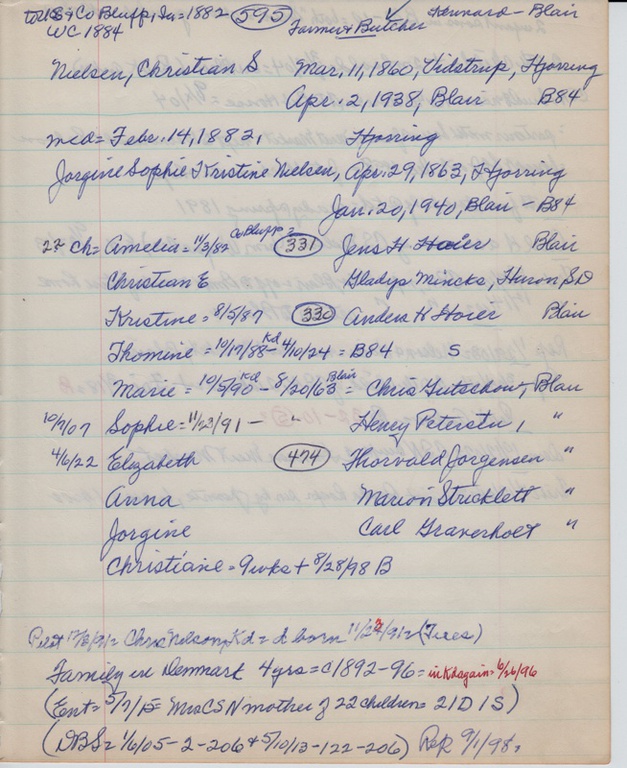 to US & Co Bluff, Ia = 1882 (595) Kennard - Blair
WC 1884 Farmer & Butcher
Nielsen, Christian S Mar. 11, 1860, Vidstrup, Hjorring
Apr. 2, 1938, Blair B84
md = Febr. 14, 1882, Hjorring
Jorgine Sophie Kristine Nielsen, Apr. 29, 1863, Hjorring
Jan. 20, 1940, Blair - B84
22 ch = Amelia = 11/3/82 Co Bluff = (331) Jens H. Hoier Blair
Christian E Gladys Mincks, Huron, SD
Kristine = 8/5/87 (330) Anders K Hoier Blair
Thomine = 10/17/88 Kd - 4/10/24 = B84 S
Marie = 10/5/90 Kd - 8/20/63 Blair = Chris Gutschow, Blair
10/7/07 Sophie = 11/23/91 - " Henry Petersen, "
4/6/22 Elizabeth (474) Thorvald Jorgensen "
Anna Marion Stricklett "
Jorgine Carl Graverholt "
Christiane = 9 wks + 8/28/98 B
Chris Nelson, Kd = d born
Family in Denmark 4 yrs = c1892-96 = in Kd again = 6/26/96
(Ent = 5/7/15 = Mrs C S N mother of 22 children = 21 D 1 S)
(DBS = 1/6/05 - 2 - 206 & 5/10/13 - 122 - 206) Rep 9/1/98.